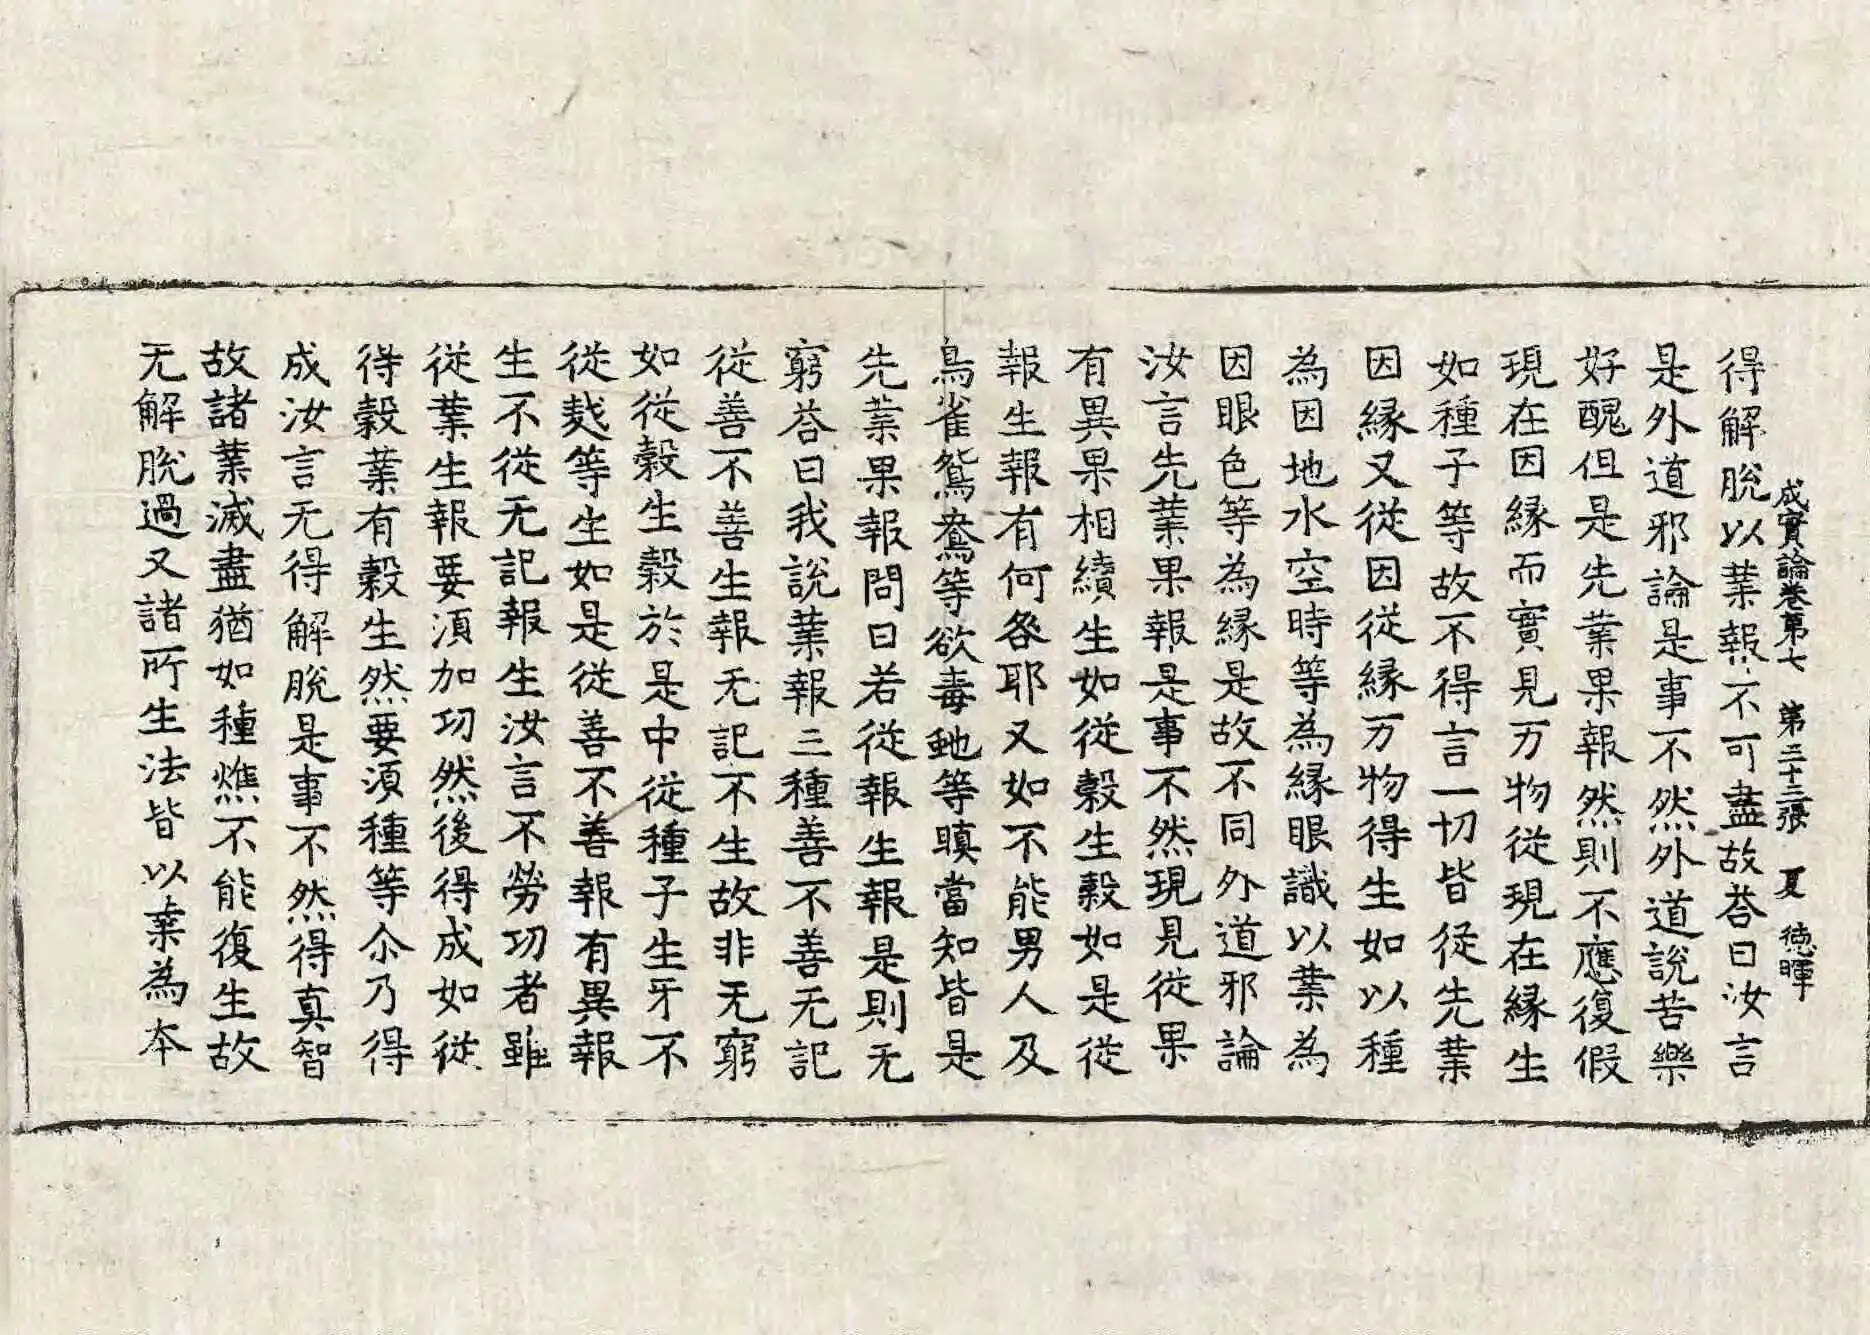 成實論卷第七　第二十三張　夏　德暉
得解脫以業報不可盡故荅曰汝言
是外道邪論是事不然外道說苦樂
好醜但是先業果報然則不應復假
現在因緣而實見万物從現在緣生
如種子等故不得言一切皆從先業
因緣又從因從緣万物得生如以種
為因地水空時等為緣眼識以業為
因眼色等為緣是故不同外道邪論
汝言先業果報是事不然現見從果
有異果相續生如從穀生穀如是從
報生報有何咎耶又如不能男人及
鳥雀鴛鴦等欲毒虵等瞋當知皆是
先業果報問曰若從報生報是則无
窮荅曰我說業報三種善不善无記
從善不善生報无記不生故非无窮
如從穀生穀於是中從種子生牙不
從𥝖等生如是從善不善報有異報
生不從无記報生汝言不勞功者雖
從業生報要湏加功然後得成如從
得穀業有穀生然要湏種等尒乃得
成汝言无得解脫是事不然得真智
故諸業滅盡猶如種燋不能復生故
无解脫過又諸所生法皆以業為本